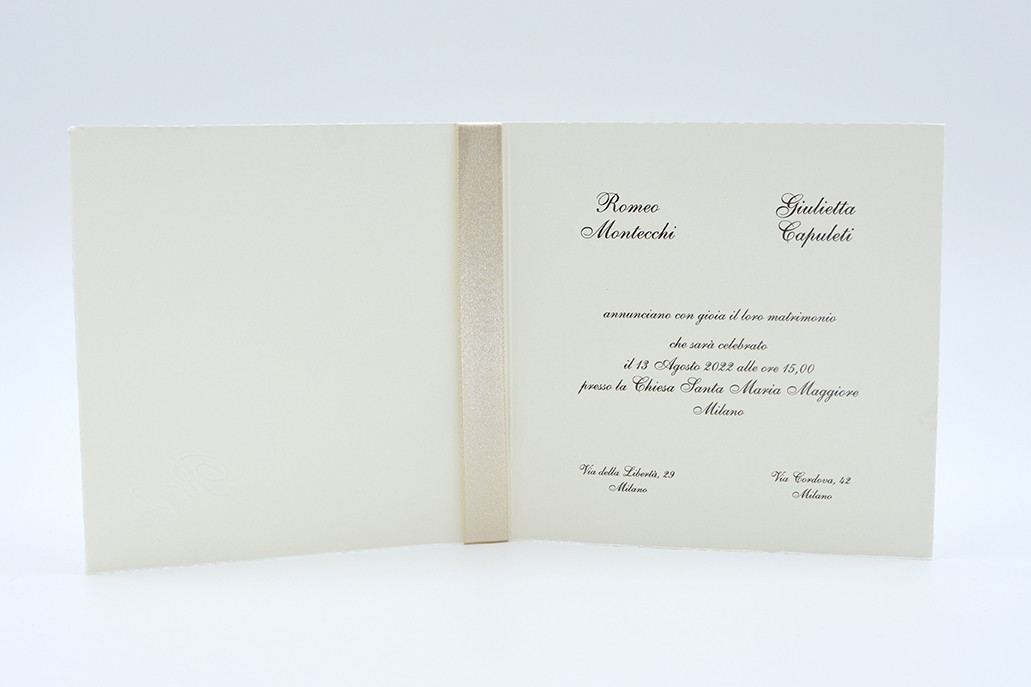 Romeo
Montecchi
Giulietta
Capuleti
annunciano con gioia il loro matrimonio
che sarà celebrato
il 13 Agosto 2022 alle ore 15,00
presso la Chiesa Santa Maria Maggiore
Milano
Via della Libertà, 29
Milano
Via Cordova, 42
Milano